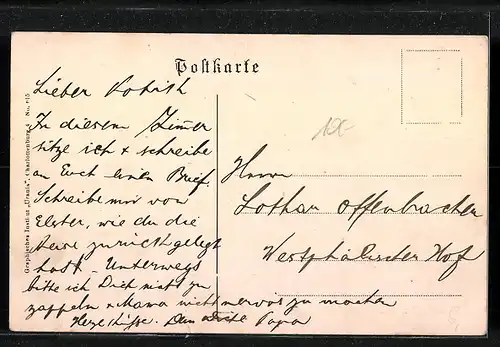 Postkarte
Lieber
In diesem Zimmer
sitze ich + schreibe
an Euch einen Brief.
Schreibe mir von
Elster, wie du die
Reise zurückgelegt
hast – Unterwegs
bitte ich Dich nicht zu
zappeln + Mama nicht nervös zu machen
Herzl. Küsse. Dein Papa
Herrn
Lothar Offenbacher
Westphälischer Hof
Graphisches Institut "Urania", Charlottenburg
12€